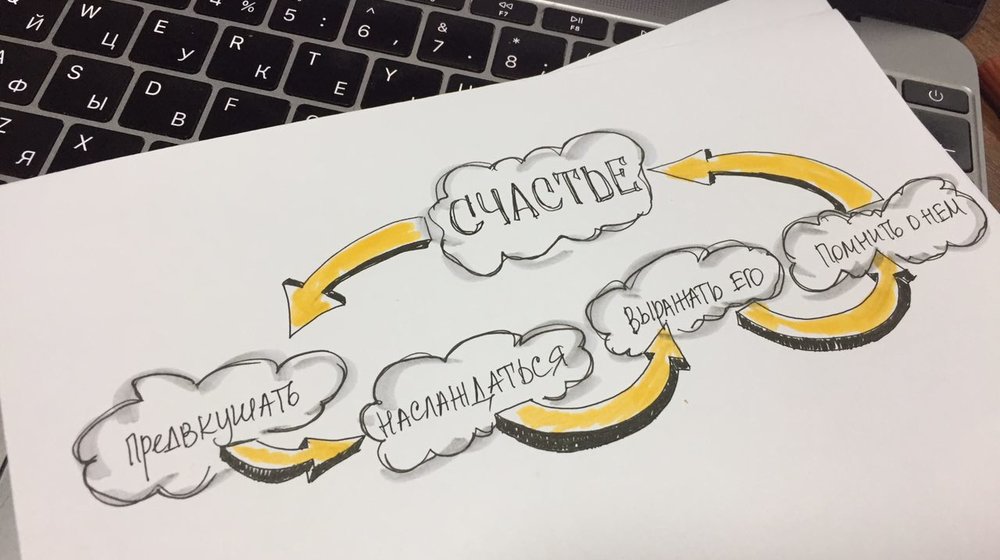 % 5 :
^ 6 ,
& 7 .
* 8 ;
F7
F8
Й
W Ц
E У
R К
T Е
Y
Ф
S Ы
D В
F
Z Я
X
СЧАСТЬЕ
ПОМНИТЬ О НЕМ
ВЫРАЖАТЬ ЕГО
НАСЛАЖДАТЬСЯ
ПРЕДВКУШАТЬ